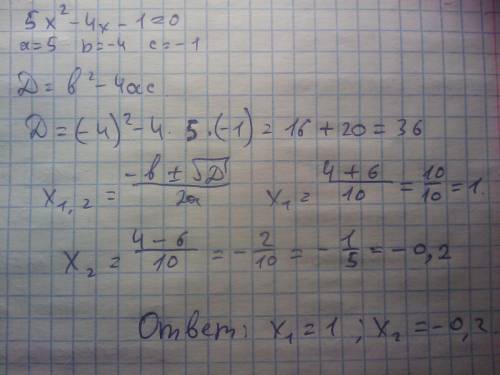 5x² - 4x - 1 = 0
a = 5 b = -4 c = -1
D = b² - 4ac
D = (-4)² - 4 · 5 · (-1) = 16 + 20 = 36
x₁,₂ = (-b ± √D)/2a x₁ = (4 + 6)/10 = 10/10 = 1.
x₂ = (4 - 6)/10 = - 2/10 = - 1/5 = - 0,2
Ответ: x₁ = 1 ; x₂ = -0,2